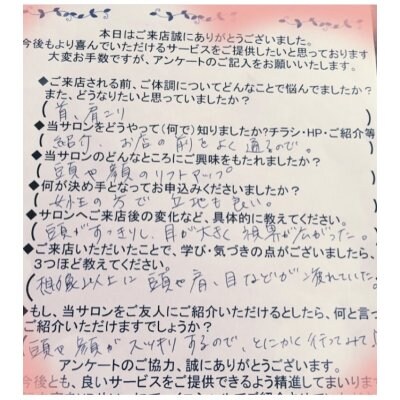 本日はご来店誠にありがとうございました。
今後もより喜んでいただけるサービスをご提供したいと思っております
大変お手数ですが、アンケートのご記入をお願いいたします。
◆ご来店される前、ご体調についてどんなことで悩んでましたか?
また、どうなりたいと思っていましたか?
(首、肩こり
◆当サロンをどうやって(何で)知りましたか?チラシ・HP・ご紹介等
(紹介、お店の前をよく通るので。
◆当サロンのどんなところにご興味をもたれましたか?
(頭や顔のリフトアップ。
◆何が決め手となってお申込みくださいましたか?
(女性の方で 立地も良い。
◆サロンへご来店後の変化など、具体的に教えてください。
(頭がすっきりし、目が大きく 視界が広がった。)
◆ご来店いただいたことで、学び・気づきの点がございましたら、
3つほど教えてください。
(想像以上に 頭や肩、目などが 疲れていた。
◆もし、当サロンをご友人にご紹介いただけるとしたら、何と言っ
ご紹介いただけますでしょうか?
(頭や顔がスッキリするので、とにかく行ってみて!
アンケートのご協力、誠にありがとうございます。
今後とも、良いサービスをご提供できるよう精進してまいります